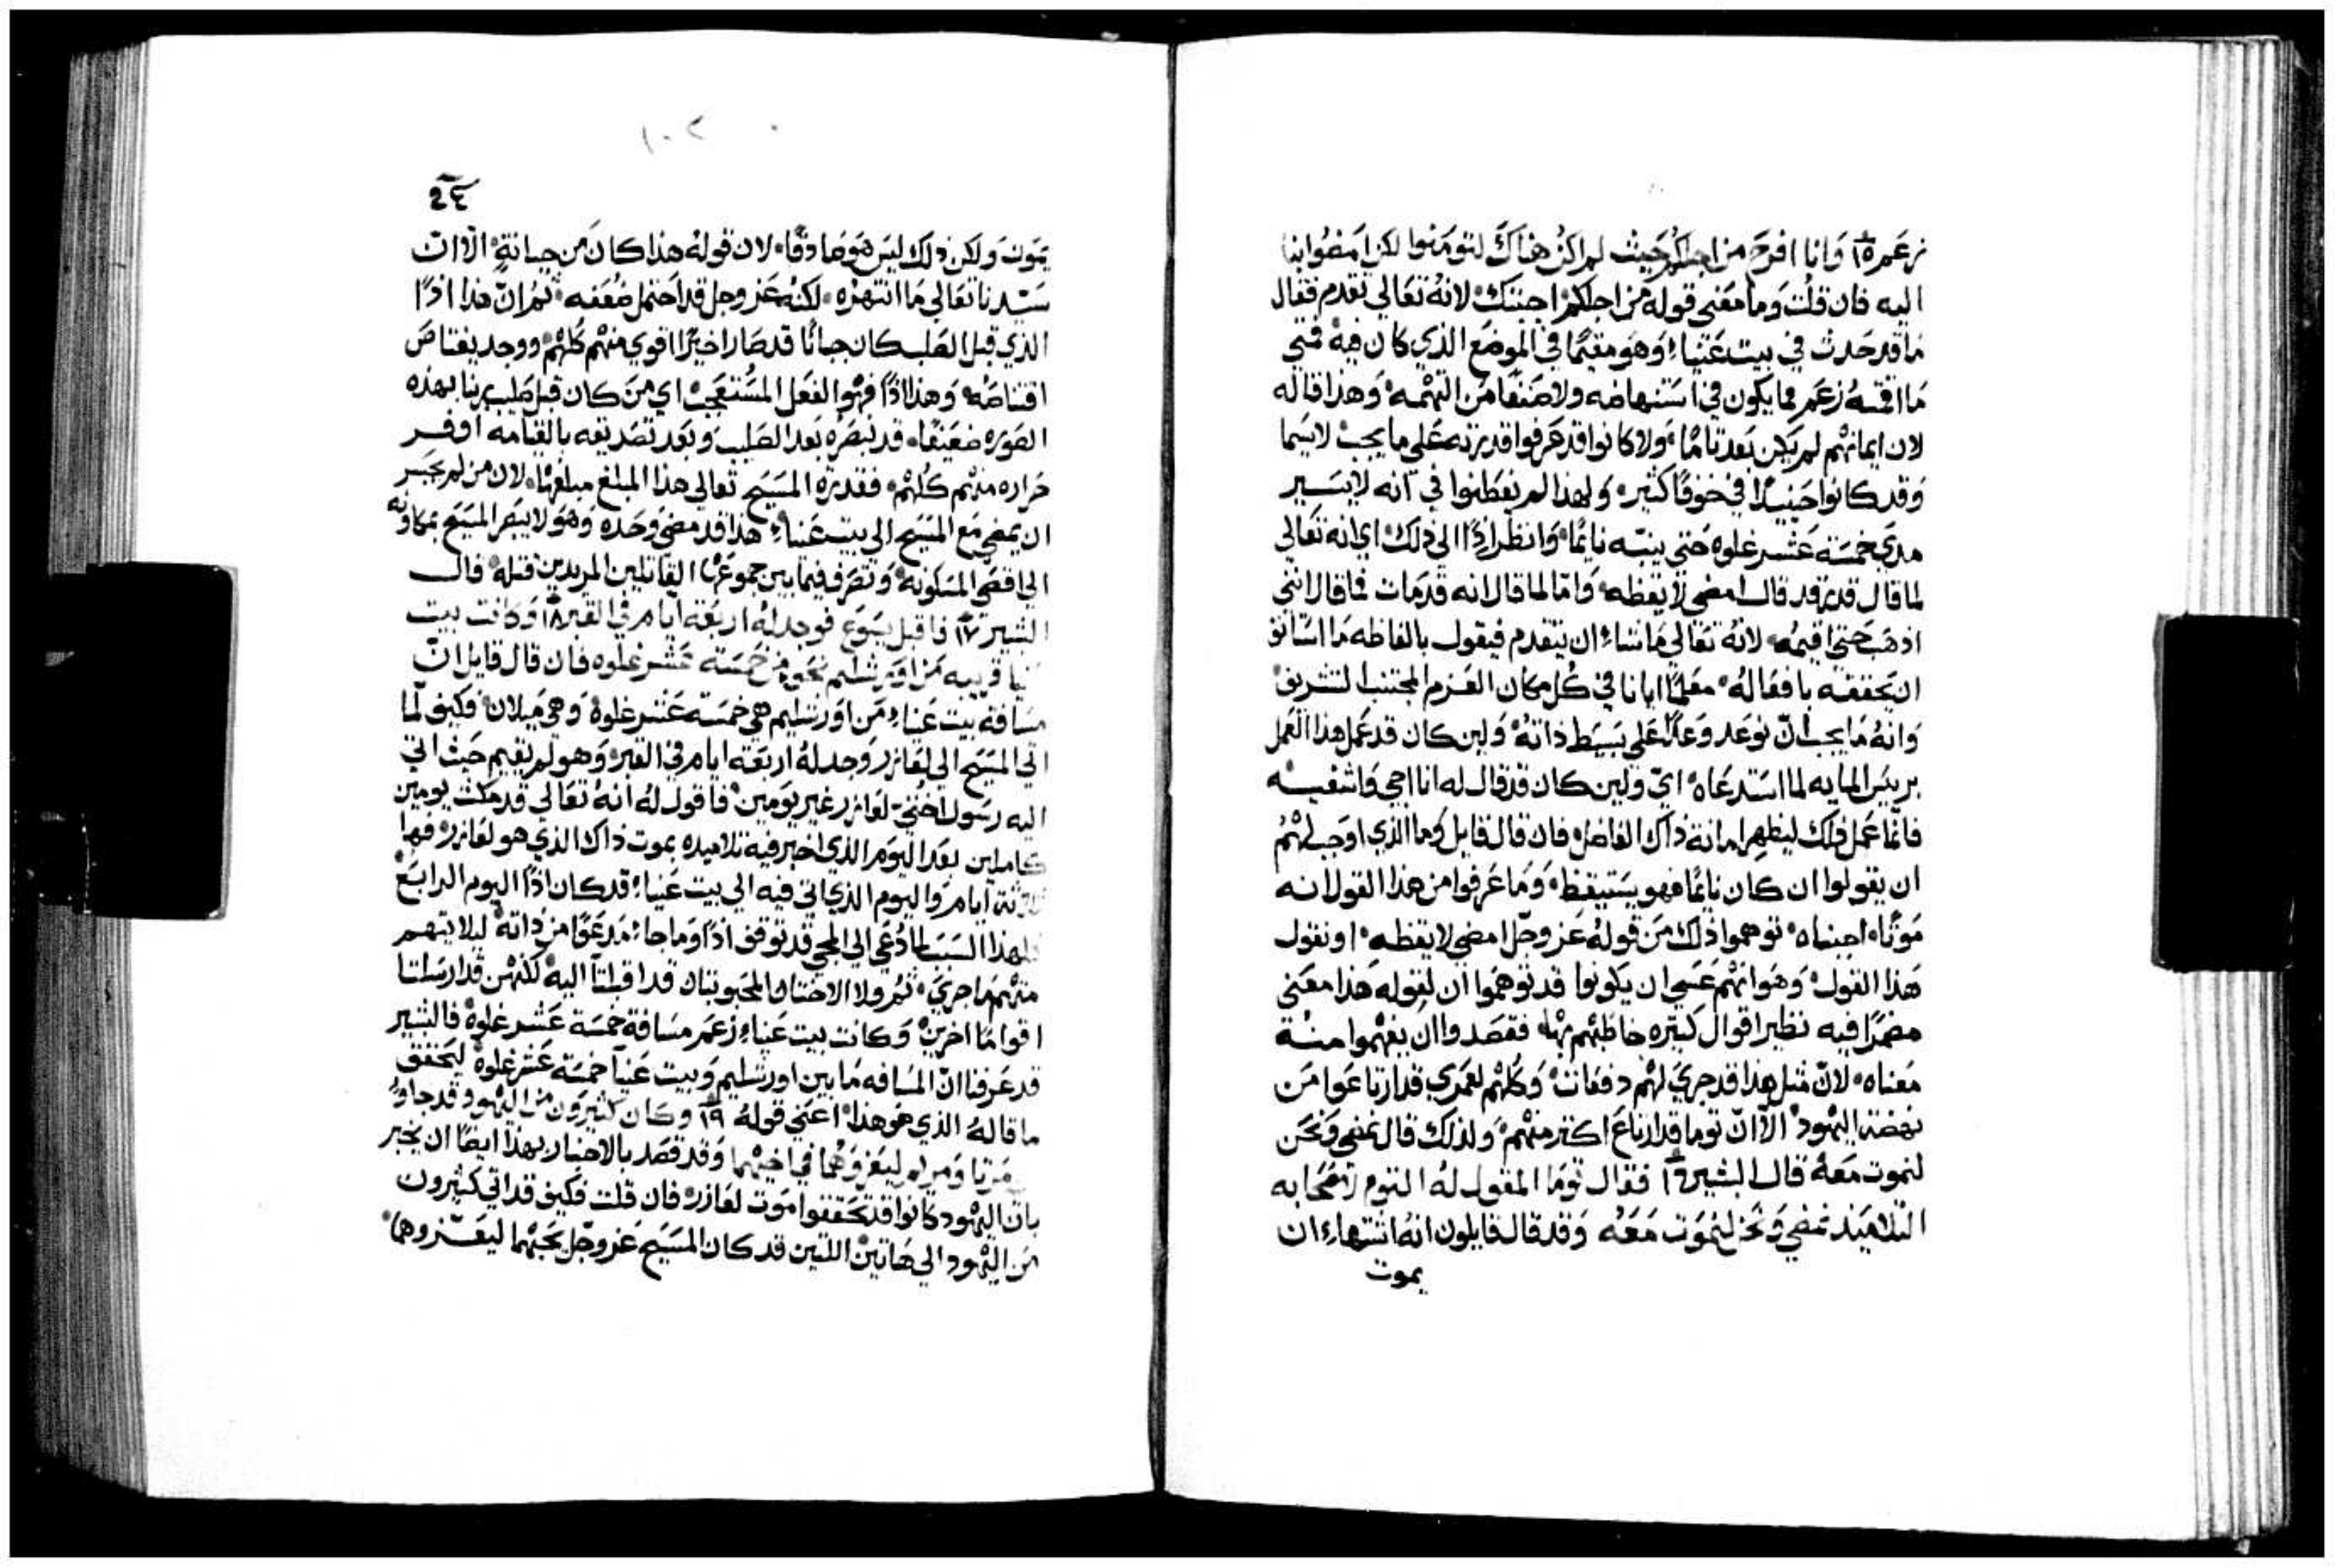 زعم ١٥ وانا افرح من اجلكم حيث لم اكن هناك لتومنوا لكن امضوا بنا
اليه فان قلت وما معني قوله من اجلكم اجبتك لانه تعالي تقدم فقال
ما قد حدث في بيت عنيا وهو مقيما في الموضع الذي كان فيه فمتي
ما اقمته زعم فما يكون في استنهاضه ولا صنفا من التهمه وهذا قاله
لان ايمانهم لم يكن بعد تاما ولا كانوا قد عرفوا قدرته علي ما يجب لاسيما
وقد كانوا حينيذا في خوفا كثير ولهذا لم يفطنوا في انه لا يسير
مدي خمسة عشر غلوه حتي ينبه نايما وانظر اذا الي ذلك اي انه تعالي
لما قال قد رقد قال امضي لايقظه واما لما قال انه قد مات فما قال انني
اذهب حتي اقيمه لانه تعالي ما شاء ان يتقدم فيقول بالفاظه ما
ان يحققه بافعاله معلما ايانا في كل مكان العزم المجتنب التشريف
وانه ما يجب ان نوعد وعدا علي بسيط ذاته ولين كان قد عمل هذا العمل
بريس المايه لما استدعاه اي ولين كان قد قال له انا اجي واشفيه
فانما عمل ذلك ليظهر امانة ذاك الفاضل فان قال قايل وما الذي اوجب لهم
ان يقولوا ان كان نايما فهو يستيقظ وما عرفوا من هذا القول انه
موتا اجبناه توهموا ذلك من قوله عز وجل امضي لايقظه او نقول
هذا القول وهو انهم عسي ان يكونوا قد توهموا ان لقوله هذا معني
مضمرا فيه نظير اقوال كثيره خاطبهم بها فقصدوا ان يفهموا منه
معناه لان مثل هذا قد جري لهم دفعات وكلهم لعمري قد ارتاعوا من
نهضة اليهود الا ان توما قد ارتاع اكثر منهم ولذلك قال نمضي ونحن
لنموت معه قال البشير ١٦ فقال توما المقول له التوم لاصحابه
التلاميذ نمضي ونحن لنموت معه وقد قال قايلون انه اشتهاء ان
يموت
١٠٢
٢٤
يموت ولكن ذلك ليس هو صادقا لان قوله هذا كان من جبانة الا ان
سيدنا تعالي ما انتهره لكنه عز وجل قد احتمل ضعفه ثم ان هذا اذا
الذي قبل الصلب كان جبانا قد صار اخيرا اقوي منهم كلهم ووجد يعتاص
اقتناصه وهذا اذا فهو الفعل المستعجب اي من كان قبل صليب ربنا بهذه
الصوره ضعيفا قد نبصره بعد الصليب وبعد تصديقه بالقيامه اوفر
حراره منهم كلهم فقدرة المسيح تعالي هذا المبلغ مبلغها لان من لم يجسر
ان يمضي مع المسيح الي بيت عنياء هذا قد مضي وحده وهو لا يبصر المسيح
الي اقصي المسكونه وتصرف فيما بين جموعها القاتلين المريدين قتله قال
البشير ١٧ فاقبل يسوع فوجد له اربعة ايام في القبر ١٨ وكانت بيت
عنيا قريبه من اورشليم نحو من خمسة عشر غلوه فان قال قايل ان
مسافة بيت عنياء من اورشليم هي خمسة عشر غلوة وهي ميلان فكيف لما
اتي المسيح الي لعازر وجد له اربعة ايام في القبر وهو لم يقيم حيث اتي
اليه رسول اختي لعازر غير يومين فاقول له انه تعالي قد مكث يومين
كاملين بعد اليوم الذي اخبر فيه تلاميذه بموت ذاك الذي هو لعازر فهما
ثلاثة ايام واليوم الذي اتي فيه الي بيت عنياء قد كان اذا اليوم الرابع
فلهذا السبب لما دعي الي المجي قد توقف اذا وما جاء من ذاته ليلا يتهم
متهم ما جري ثم ولا الاختان المحبوبتان قد اقبلتا اليه لكنهن قد ارسلتا
اقواما اخرين وكانت بيت عنياء زعم مسافة خمسة عشر غلوة فالبشير
قد عرفنا ان المسافه ما بين اورشليم وبيت عنيا خمسة عشر غلوة ليحقق
ما قاله الذي هو هذا اعني قوله ١٩ وكان كثيرون من اليهود قد جاوا
مرتا ومريم ليعزوهما في اخيهما وقد قصد بالاخبار بهذا ايضا ان يخبر
بان اليهود كانوا قد تحققوا موت لعازر فان قلت فكيف قد اتي كثيرون
من اليهود الي هاتين اللتين قد كان المسيح عز وجل يحبهما ليعزوهما